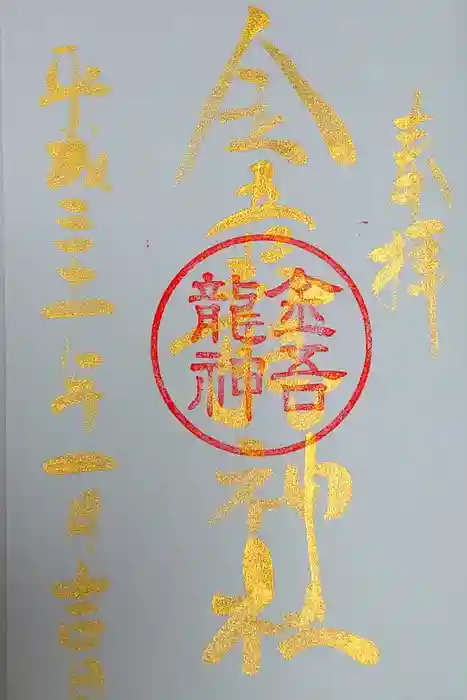 奉拝
金吾龍神社
金吾
龍神
平成三十一年一月吉日